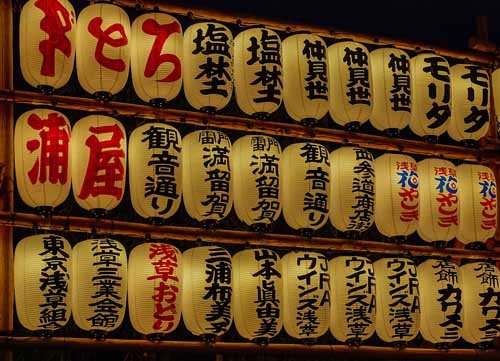 と ろ 塩埜 塩埜 仲見世 仲見世 仲見世 モリタ モリタ
浦 屋 観音通り 雷門満留賀 雷門満留賀 観音通り 西参道商店街 浅草 浅草
東京浅草組合 浅草三業会館 浅草おどり 三浦布美子 山本眞由美 ウインズ浅草 JRAウインズ浅草 JRAウインズ浅草